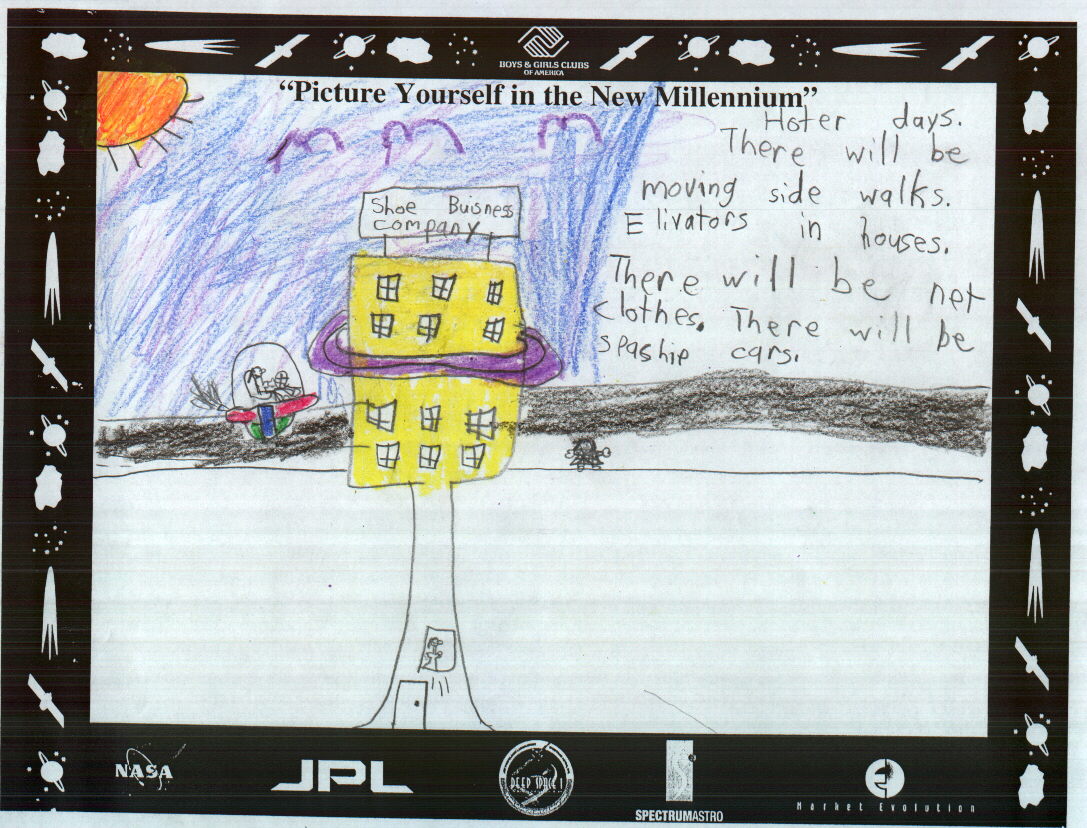 BOYS & GIRLS CLUBS
OF AMERICA
“Picture Yourself in the New Millennium”
Hoter days.
There will be
moving side walks.
Elivators in houses.
There will be net
clothes. There will be
spaship cars.
Shoe Buisness
company
NASA
JPL
DEEP SPACE 1
SPECTRUMASTRO
Market Evolution